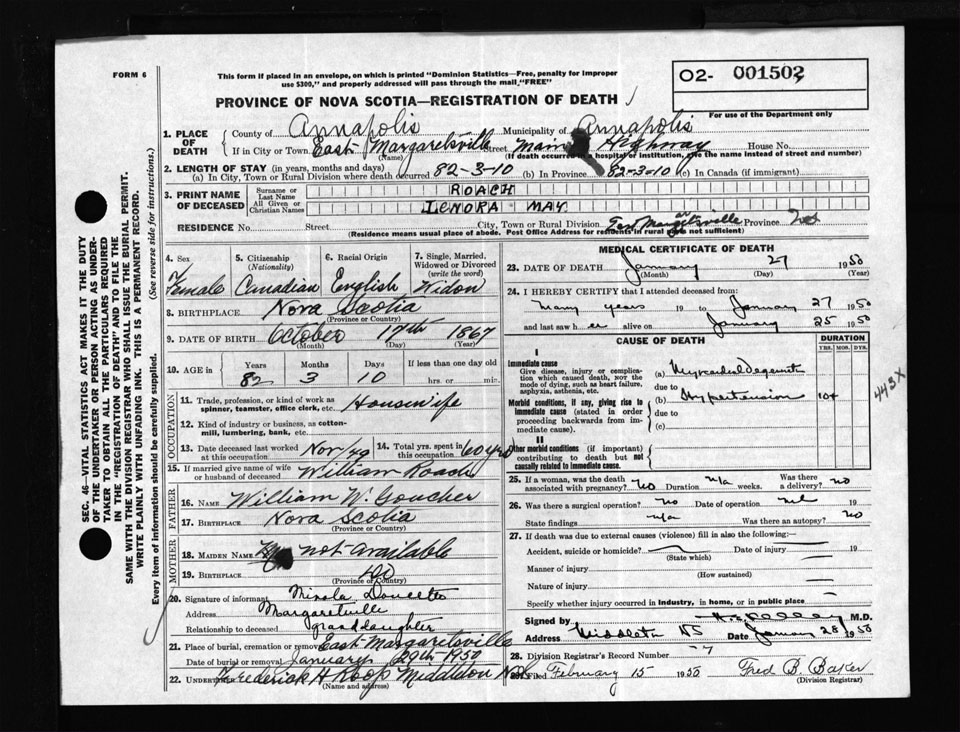 FORM 6
This form if placed in an envelope, on which is printed "Dominion Statistics—Free, penalty for improper
use $300," and properly addressed will pass through the mail "FREE"
O2- 001502
For use of the Department only
PROVINCE OF NOVA SCOTIA—REGISTRATION OF DEATH
SEC. 46—VITAL STATISTICS ACT MAKES IT THE DUTY
OF THE UNDERTAKER OR PERSON ACTING AS UNDER-
TAKER TO OBTAIN ALL THE PARTICULARS REQUIRED
IN THE "REGISTRATION OF DEATH" AND TO FILE THE
SAME WITH THE DIVISION REGISTRAR WHO SHALL ISSUE THE BURIAL PERMIT.
WRITE PLAINLY WITH UNFADING INK. THIS IS A PERMANENT RECORD.
Every item of information should be carefully supplied. (See reverse side for instructions.)
1. PLACE OF DEATH County of Annapolis Municipality of Annapolis
If in City or Town East Margaretsville Street Main Highway House No.
(Name) (If death occurred in a hospital or institution, give the name instead of street and number)
2. LENGTH OF STAY (in years, months and days)
(a) In City, Town or Rural Division where death occurred 82-3-10 (b) In Province 82-3-10 (c) In Canada (if immigrant)
3. PRINT NAME OF DECEASED Surname or Last Name ROACH
All Given or Christian Names LENORA MAY
RESIDENCE No. Street City, Town or Rural Division East Margaretsville Province NS
(Residence means usual place of abode. Post Office Address for residents in rural not sufficient)
4. Sex 5. Citizenship (Nationality) 6. Racial Origin 7. Single, Married, Widowed or Divorced (write the word)
Female Canadian English Widow
8. BIRTHPLACE Nova Scotia
(Province or Country)
9. DATE OF BIRTH October 17th 1867
(Month) (Day) (Year)
10. AGE in Years Months Days If less than one day old
82 3 10 hrs. or min.
OCCUPATION
11. Trade, profession, or kind of work as spinner, teamster, office clerk, etc. Housewife
12. Kind of industry or business, as cotton-mill, lumbering, bank, etc.
13. Date deceased last worked at this occupation Nov/49 14. Total yrs. spent in this occupation 60 yrs
15. If married give name of wife or husband of deceased William Roach
FATHER
16. NAME William W. Goucher
17. BIRTHPLACE Nova Scotia
(Province or Country)
MOTHER
18. MAIDEN NAME not available
19. BIRTHPLACE do
(Province or Country)
20. Signature of informant
Address Margaretville
Relationship to deceased granddaughter
21. Place of burial, cremation or removal East Margaretsville
Date of burial or removal January 29th 1950
22. UNDERTAKER Frederick H Roop Middleton N.S.
(Name and address)
MEDICAL CERTIFICATE OF DEATH
23. DATE OF DEATH January 27 1950
(Month) (Day) (Year)
24. I HEREBY CERTIFY that I attended deceased from:
Many years 19 to January 27 1950
and last saw her alive on January 25 1950
CAUSE OF DEATH DURATION
YRS. MOS. DYS.
I
Immediate cause
Give disease, injury or complication which caused death, not the mode of dying, such as heart failure, asphyxia, asthenia, etc.
(a) Myocardial
due to
Morbid conditions, if any, giving rise to immediate cause (stated in order proceeding backwards from immediate cause).
(b) Hypertension 10+
due to
(c)
443X
II
Other morbid conditions (if important) contributing to death but not causally related to immediate cause.
25. If a woman, was the death associated with pregnancy? no Duration n/a weeks. Was there a delivery? no
26. Was there a surgical operation? no Date of operation nil 19
State findings n/a Was there an autopsy? no
27. If death was due to external causes (violence) fill in also the following:
Accident, suicide or homicide? — Date of injury — 19
(State which)
Manner of injury
(How sustained)
Nature of injury —
Specify whether injury occurred in Industry, in home, or in public place —
Signed by M.D.
Address Middleton NS Date January 28 1950
28. Division Registrar's Record Number 7
29. Filed February 15 1950 Fred B. Baker
(Division Registrar)